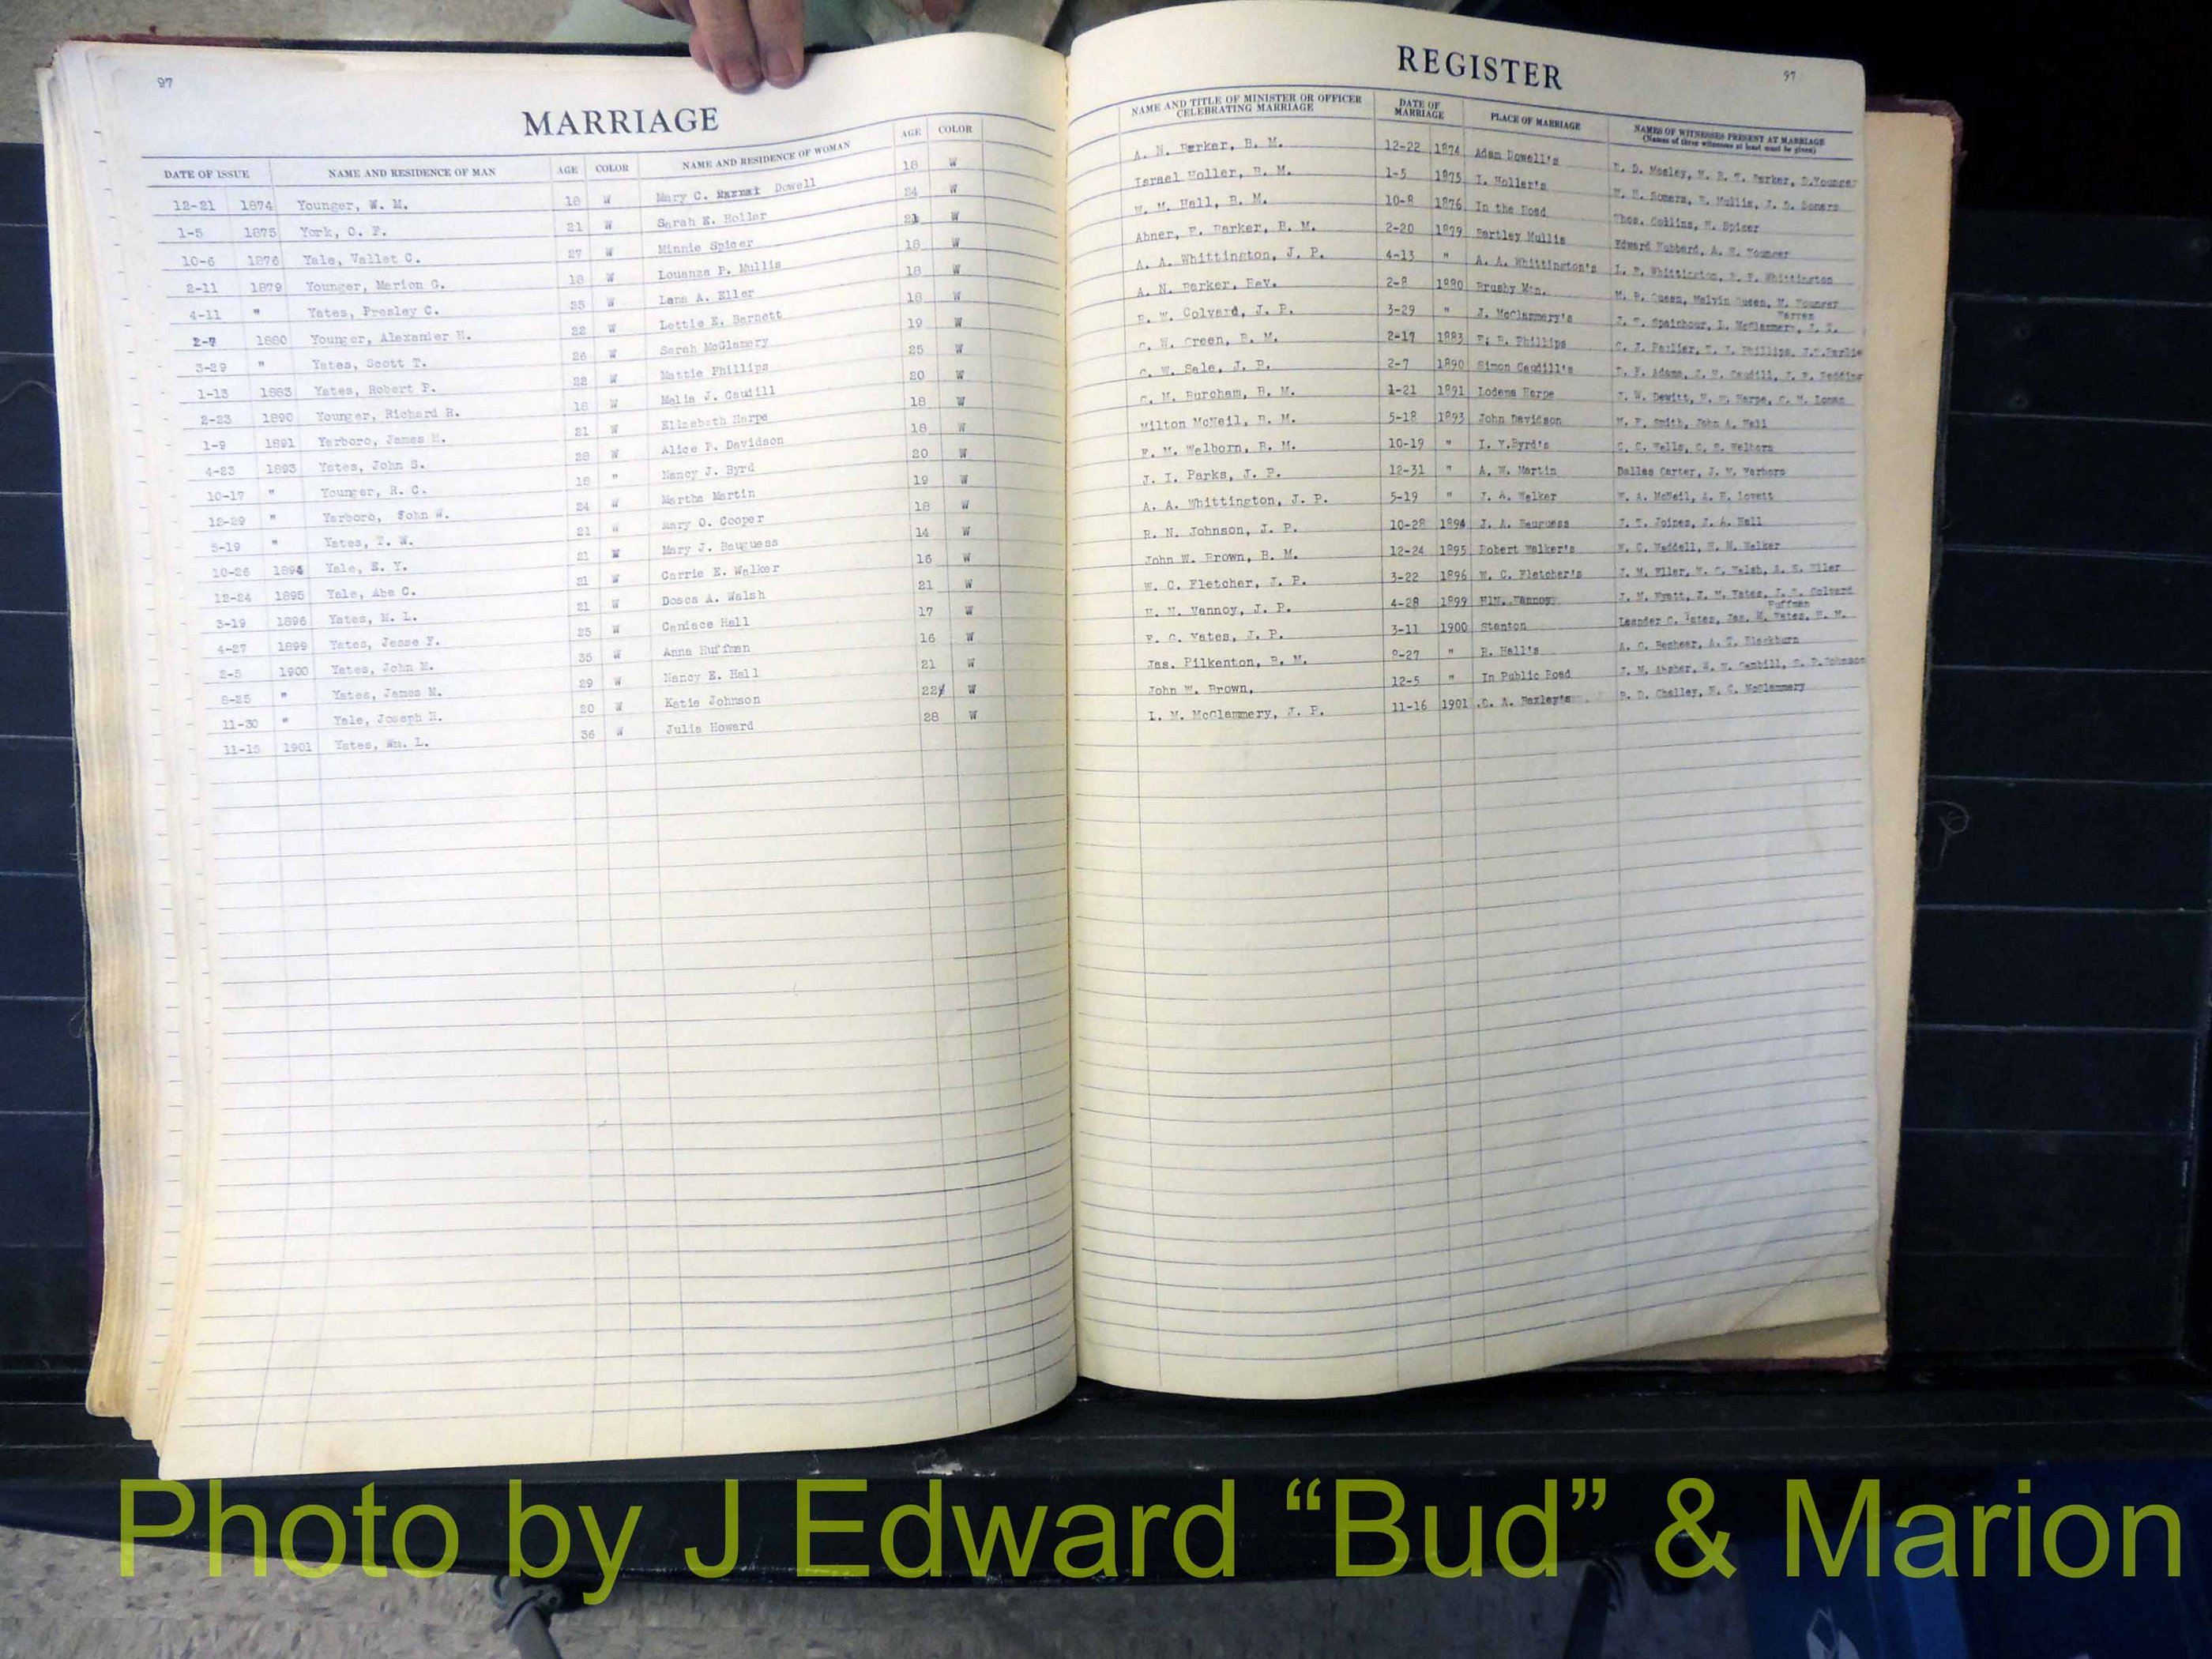 97
MARRIAGE
DATE OF ISSUE NAME AND RESIDENCE OF MAN AGE COLOR NAME AND RESIDENCE OF WOMAN AGE COLOR
12-21 1874 Younger, W. M. 18 W Mary C. Dowell 18 W
1-5 1875 York, O. F. 21 W Sarah E. Holler 24 W
10-6 1876 Yale, Vallet C. 27 W Minnie Spicer 21 W
2-11 1879 Younger, Marion G. 18 W Louanza P. Mullis 18 W
4-11 " Yates, Presley C. 25 W Lena A. Eller 18 W
2-7 1880 Younger, Alexander H. 22 W Lettie E. Barnett 18 W
3-29 " Yates, Scott T. 26 W Sarah McGlamery 19 W
1-13 1883 Yates, Robert P. 22 W Mattie Phillips 25 W
2-23 1890 Younger, Richard R. 18 W Melia J. Caudill 20 W
1-9 1891 Yarboro, James M. 21 W Elizabeth Harpe 18 W
4-23 1893 Yates, John S. 28 W Alice P. Davidson 18 W
10-17 " Younger, R. C. 18 " Nancy J. Byrd 20 W
12-29 " Yarboro, John W. 24 W Martha Martin 19 W
5-19 " Yates, T. W. 21 W Mary O. Cooper 18 W
10-26 1894 Yale, E. Y. 21 W Mary J. Bauguess 14 W
12-24 1895 Yale, Abe C. 21 W Carrie E. Walker 16 W
3-19 1896 Yates, M. L. 21 W Dosca A. Walsh 21 W
4-27 1899 Yates, Jesse F. 25 W Candace Hall 17 W
2-5 1900 Yates, John M. 35 W Anna Huffman 16 W
8-25 " Yates, James M. 29 W Nancy E. Hall 21 W
11-30 " Yale, Joseph H. 20 W Katie Johnson 22 W
11-15 1901 Yates, Wm. L. 36 W Julia Howard 28 W
REGISTER 97
NAME AND TITLE OF MINISTER OR OFFICER CELEBRATING MARRIAGE DATE OF MARRIAGE PLACE OF MARRIAGE NAMES OF WITNESSES PRESENT AT MARRIAGE
(Names of three witnesses at least must be given)
A. N. Parker, B. M. 12-22 1874 Adam Dowell's R. D. Mosley, Parker, Younger
Israel Holler, B. M. 1-5 1875 I. Holler's W. H. Somers, Mullis, J. Somers
W. M. Hall, B. M. 10-8 1876 In the Road Thos. Collins, Spicer
Abner, Parker, B. M. 2-20 1879 Bartley Mullis Edward Hubbard, A. H. Younger
A. A. Whittington, J. P. 4-13 " A. A. Whittington's Whittington, Whittington
A. N. Parker, Rev. 2-8 1880 Brushy Mtn. Queen, Melvin Queen, M. Younger
R. W. Colvard, J. P. 3-29 " J. McGlammery's Spainhour, L. McGlammery, Warren
C. W. Green, B. M. 2-17 1883 Phillips C. J. Parlier, Phillips,
C. W. Sale, J. P. 2-7 1890 Simon Caudill's Adams, Caudill, Redding
C. M. Burcham, B. M. 1-21 1891 Lodema Harpe J. W. Dewitt, Harpe, Logan
Milton McNeil, B. M. 5-18 1893 John Davidson Smith, John A. Hall
F. M. Welborn, B. M. 10-19 " I. Y. Byrd's C. C. Wells, Welborn
J. I. Parks, J. P. 12-31 " A. W. Martin Dallas Carter, J. M. Yarboro
A. A. Whittington, J. P. 5-19 " J. A. Walker W. A. McNeil, A. E. Lovett
R. N. Johnson, J. P. 10-28 1894 J. A. Bauguess J. T. Joines, J. A. Hall
John W. Brown, B. M. 12-24 1895 Robert Walker's W. C. Waddell, Walker
W. C. Fletcher, J. P. 3-22 1896 W. C. Fletcher's J. M. Eller, Walsh, Eller
H. N. Vannoy, J. P. 4-28 1899 Vannoy J. M. Hyatt, J. M. Yates, Colvard
F. G. Yates, J. P. 3-11 1900 Stanton Leander C. Yates, Jas. M. Yates, Huffman
Jas. Pilkenton, B. M. 8-27 " R. Hall's Beshear, A. T. Blackburn
John W. Brown, 12-5 " In Public Road J. M. Absher, Gambill, Johnson
L. M. McGlammery, J. P. 11-16 1901 D. A. Baxley's Challey, McGlammery
Photo by J Edward “Bud” & Marion